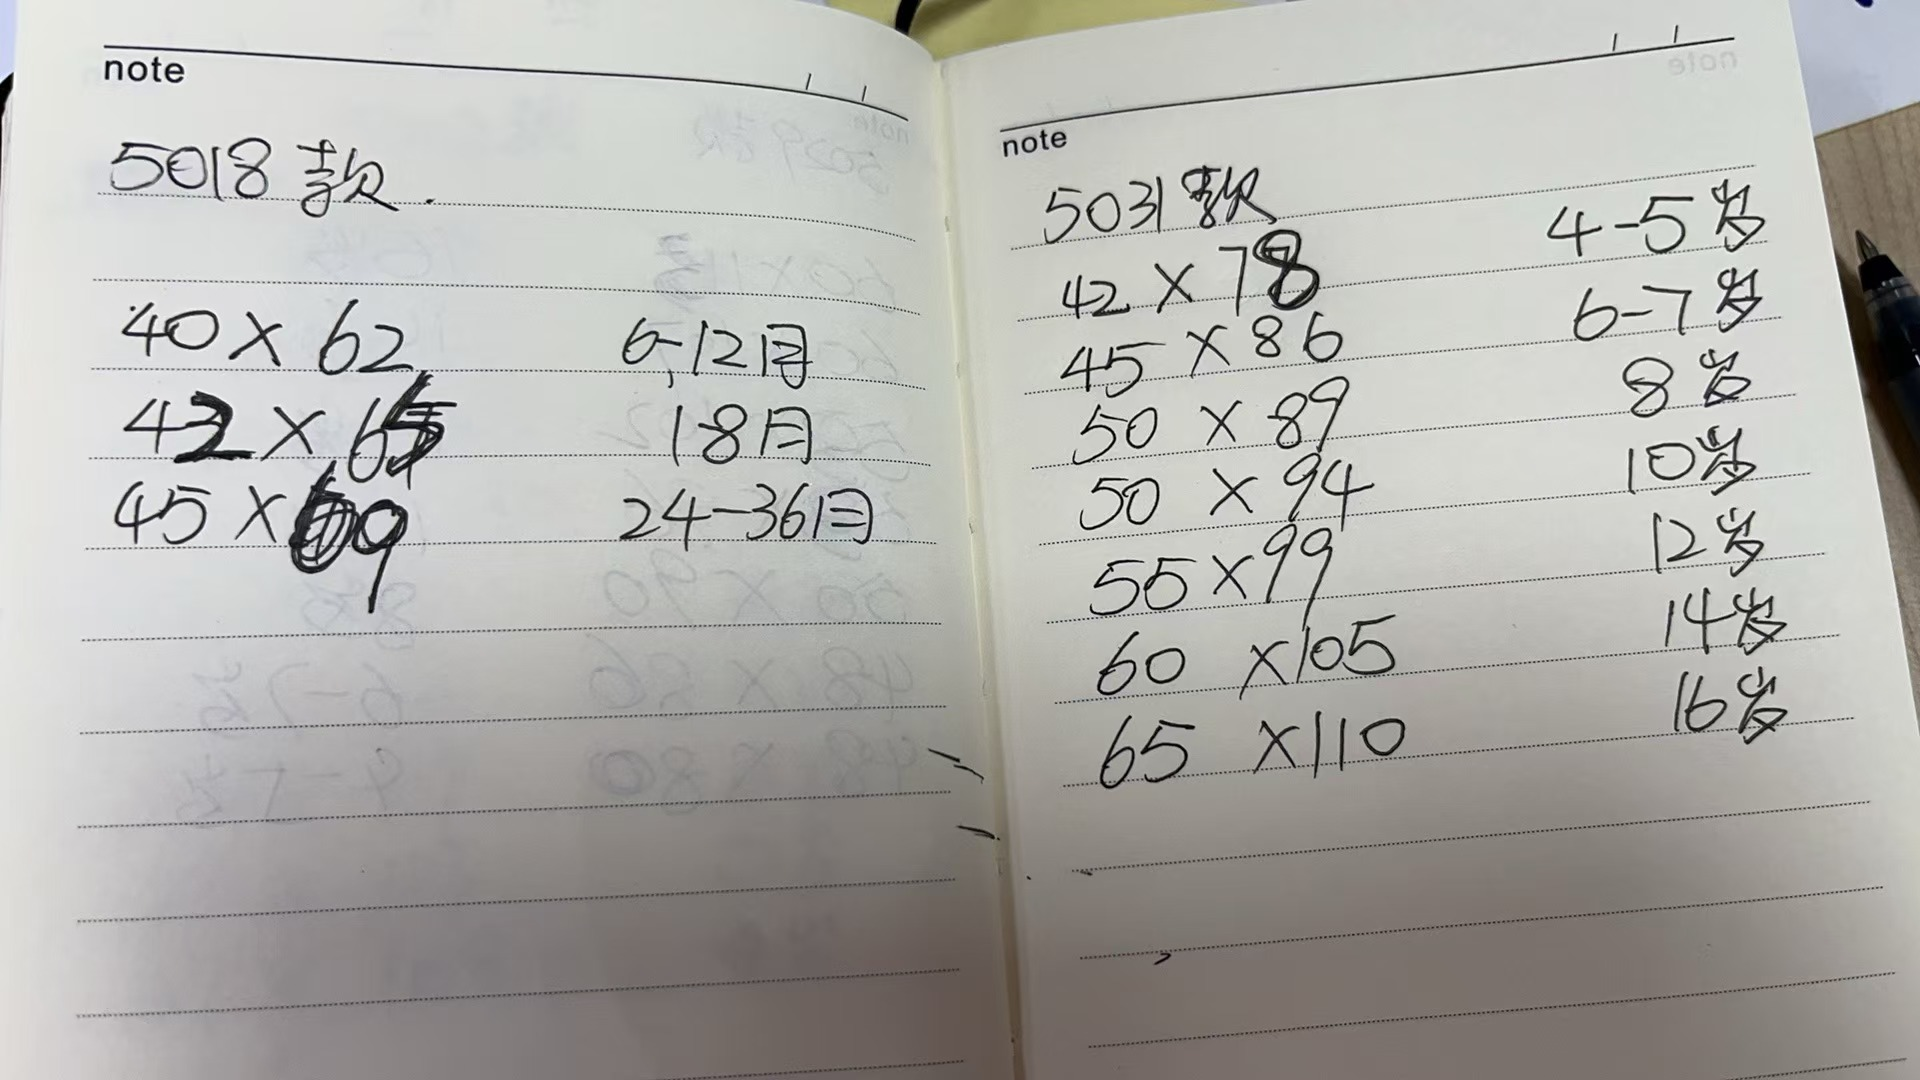 note
5018款.
40×62 6-12月
42×65 18月
45×69 24-36月
note
5031款
42×78 4-5岁
45×86 6-7岁
50×89 8岁
50×94 10岁
55×99 12岁
60×105 14岁
65×110 16岁